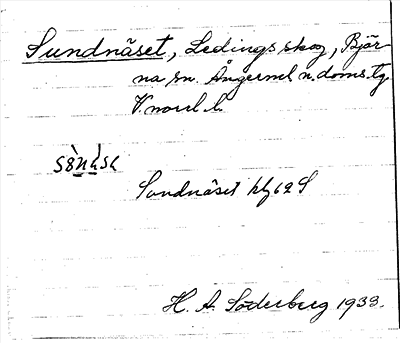 Sundnäset, Ledingsskog, Björ
na sn. Ångermel n. doms. tg
V.norrl. l.
Sundnäset hfg 62 S
H. A. Söderberg 1933.